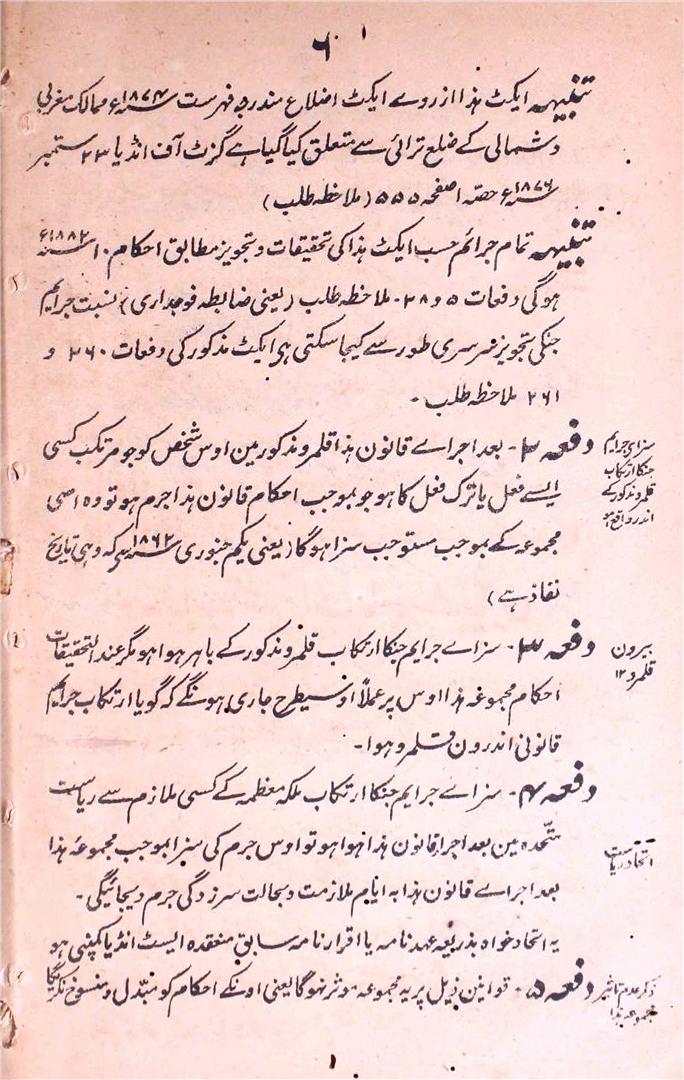 ۶
تنبیہ ایکٹ ہذا ازروے ایکٹ اضلاع مندرجہ فہرست ۱۸۷۴ء ممالک مغربی
و شمالی کے ضلع ترائی سے متعلق کیا گیا ہے گزٹ آف انڈیا ۲۳ ستمبر
۱۸۷۶ء حصّہ ا صفحہ ۵۰۵ (ملاحظہ طلب)
تنبیہ تمام جرائم حسب ایکٹ ہذا کی تحقیقات و تجویز مطابق احکام ۱۰ ۱۸۸۲ء
ہوگی دفعات ۵ و ۲۸ - ملاحظہ طلب (یعنی ضابطہ فوجداری) نسبت جرایم
جنکی تجویز سرسری طور سے کیجا سکتی ہی ایکٹ مذکور کی دفعات ۲۶۰ و
۲۶۱ ملاحظہ طلب -
سزاے جرایم
جنکا ارتکاب
قلمرو مذکور کے
اندر واقع ہو
دفعہ ۲ - بعد اجراے قانون ہذا قلمرو مذکور مین اوس شخص کو جو مرتکب کسی
ایسے فعل یا ترک فعل کا ہو جو بموجب احکام قانون ہذا جرم ہو تو وہ اسی
مجموعہ کے بموجب مستوجب سزا ہوگا (یعنی یکم جنوری ۱۸۶۲ سے کہ وہی تاریخ
نفاذ ہے)
بیرون
قلمرو ۱۲
دفعہ ۳ - سزاے جرایم جنکا ارتکاب قلمرو مذکور کے باہر ہوا ہو مگر عند التحقیقات
احکام مجموعہ ہذا اوس پر عملاً اوسیطرح جاری ہونگے کہ گویا ارتکاب جرایم
قانونی اندرون قلمرو ہوا -
دفعہ ۴ - سزاے جرایم جنکا ارتکاب ملکہ معظمہ کے کسی ملازم سے ریاست
اتحاد ریاست
متّحدہ مین بعد اجرا قانون ہذا ہوا ہو تو اوس جرم کی سزا بموجب مجموعہ ہذا
بعد اجراے قانون ہذا بہ ایام ملازمت و بحالت سرزدگی جرم دیجائیگی -
یہ اتحاد خواہ بذریعہ عہد نامہ یا اقرار نامہ سابق منعقدہ الیسٹ انڈیا کمپنی ہو
ذکر عدم تاثیر
مجموعہ ہذا
دفعہ ۵ - قوانین ذیل پر یہ مجموعہ موثر نہوگا یعنی اونکے احکام کو متبدّل و منسوخ نکریگا